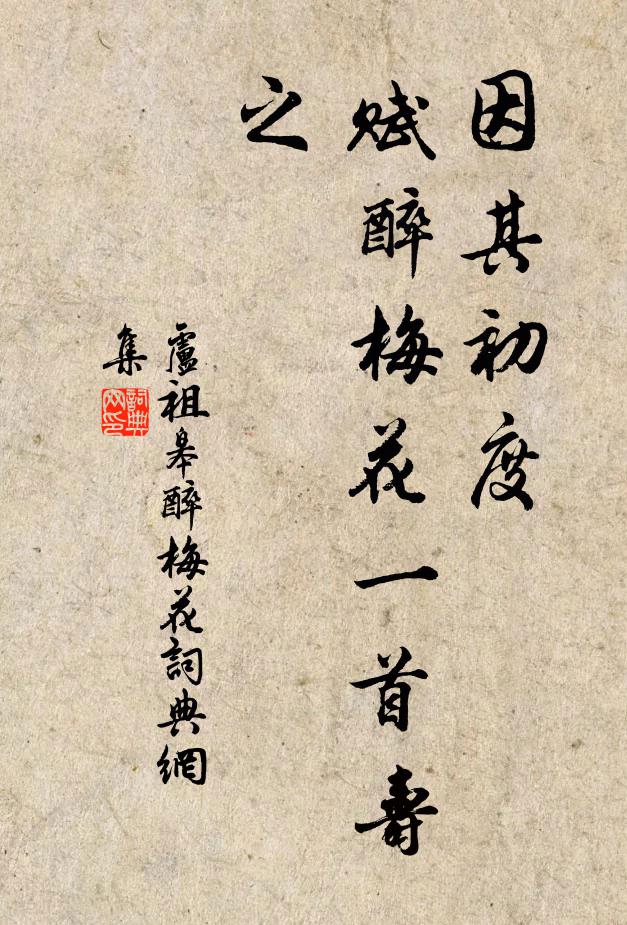 因其初度
賦醉梅花一首壽
之
盧祖皋醉梅花詞典網
集
詞典
网印